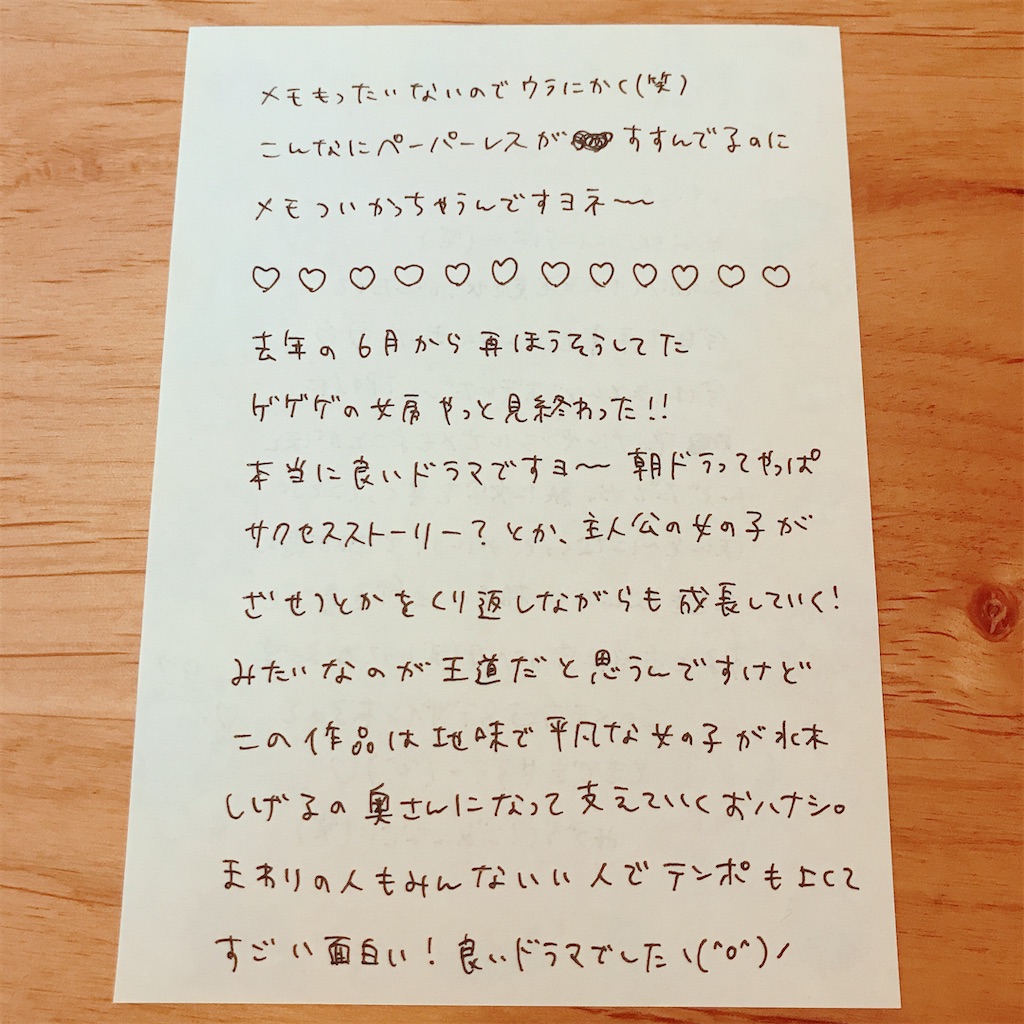 メモもったいないのでウラにかく(笑)
こんなにペーパーレスが すすんでるのに
メモついかっちゃうんですヨネ〜
♡♡♡♡♡♡♡♡♡♡♡♡
去年の6月から再ほうそうしてた
ゲゲゲの女房やっと見終わった!!
本当に良いドラマですヨ〜 朝ドラってやっぱ
サクセスストーリー?とか、主人公の女の子が
ざせつとかをくり返しながらも成長していく!
みたいなのが王道だと思うんですけど
この作品は地味で平凡な女の子が水木
しげるの奥さんになって支えていくおハナシ。
まわりの人もみんないい人でテンポもよくて
すごい面白い!良いドラマでしたヽ(^o^)ノ